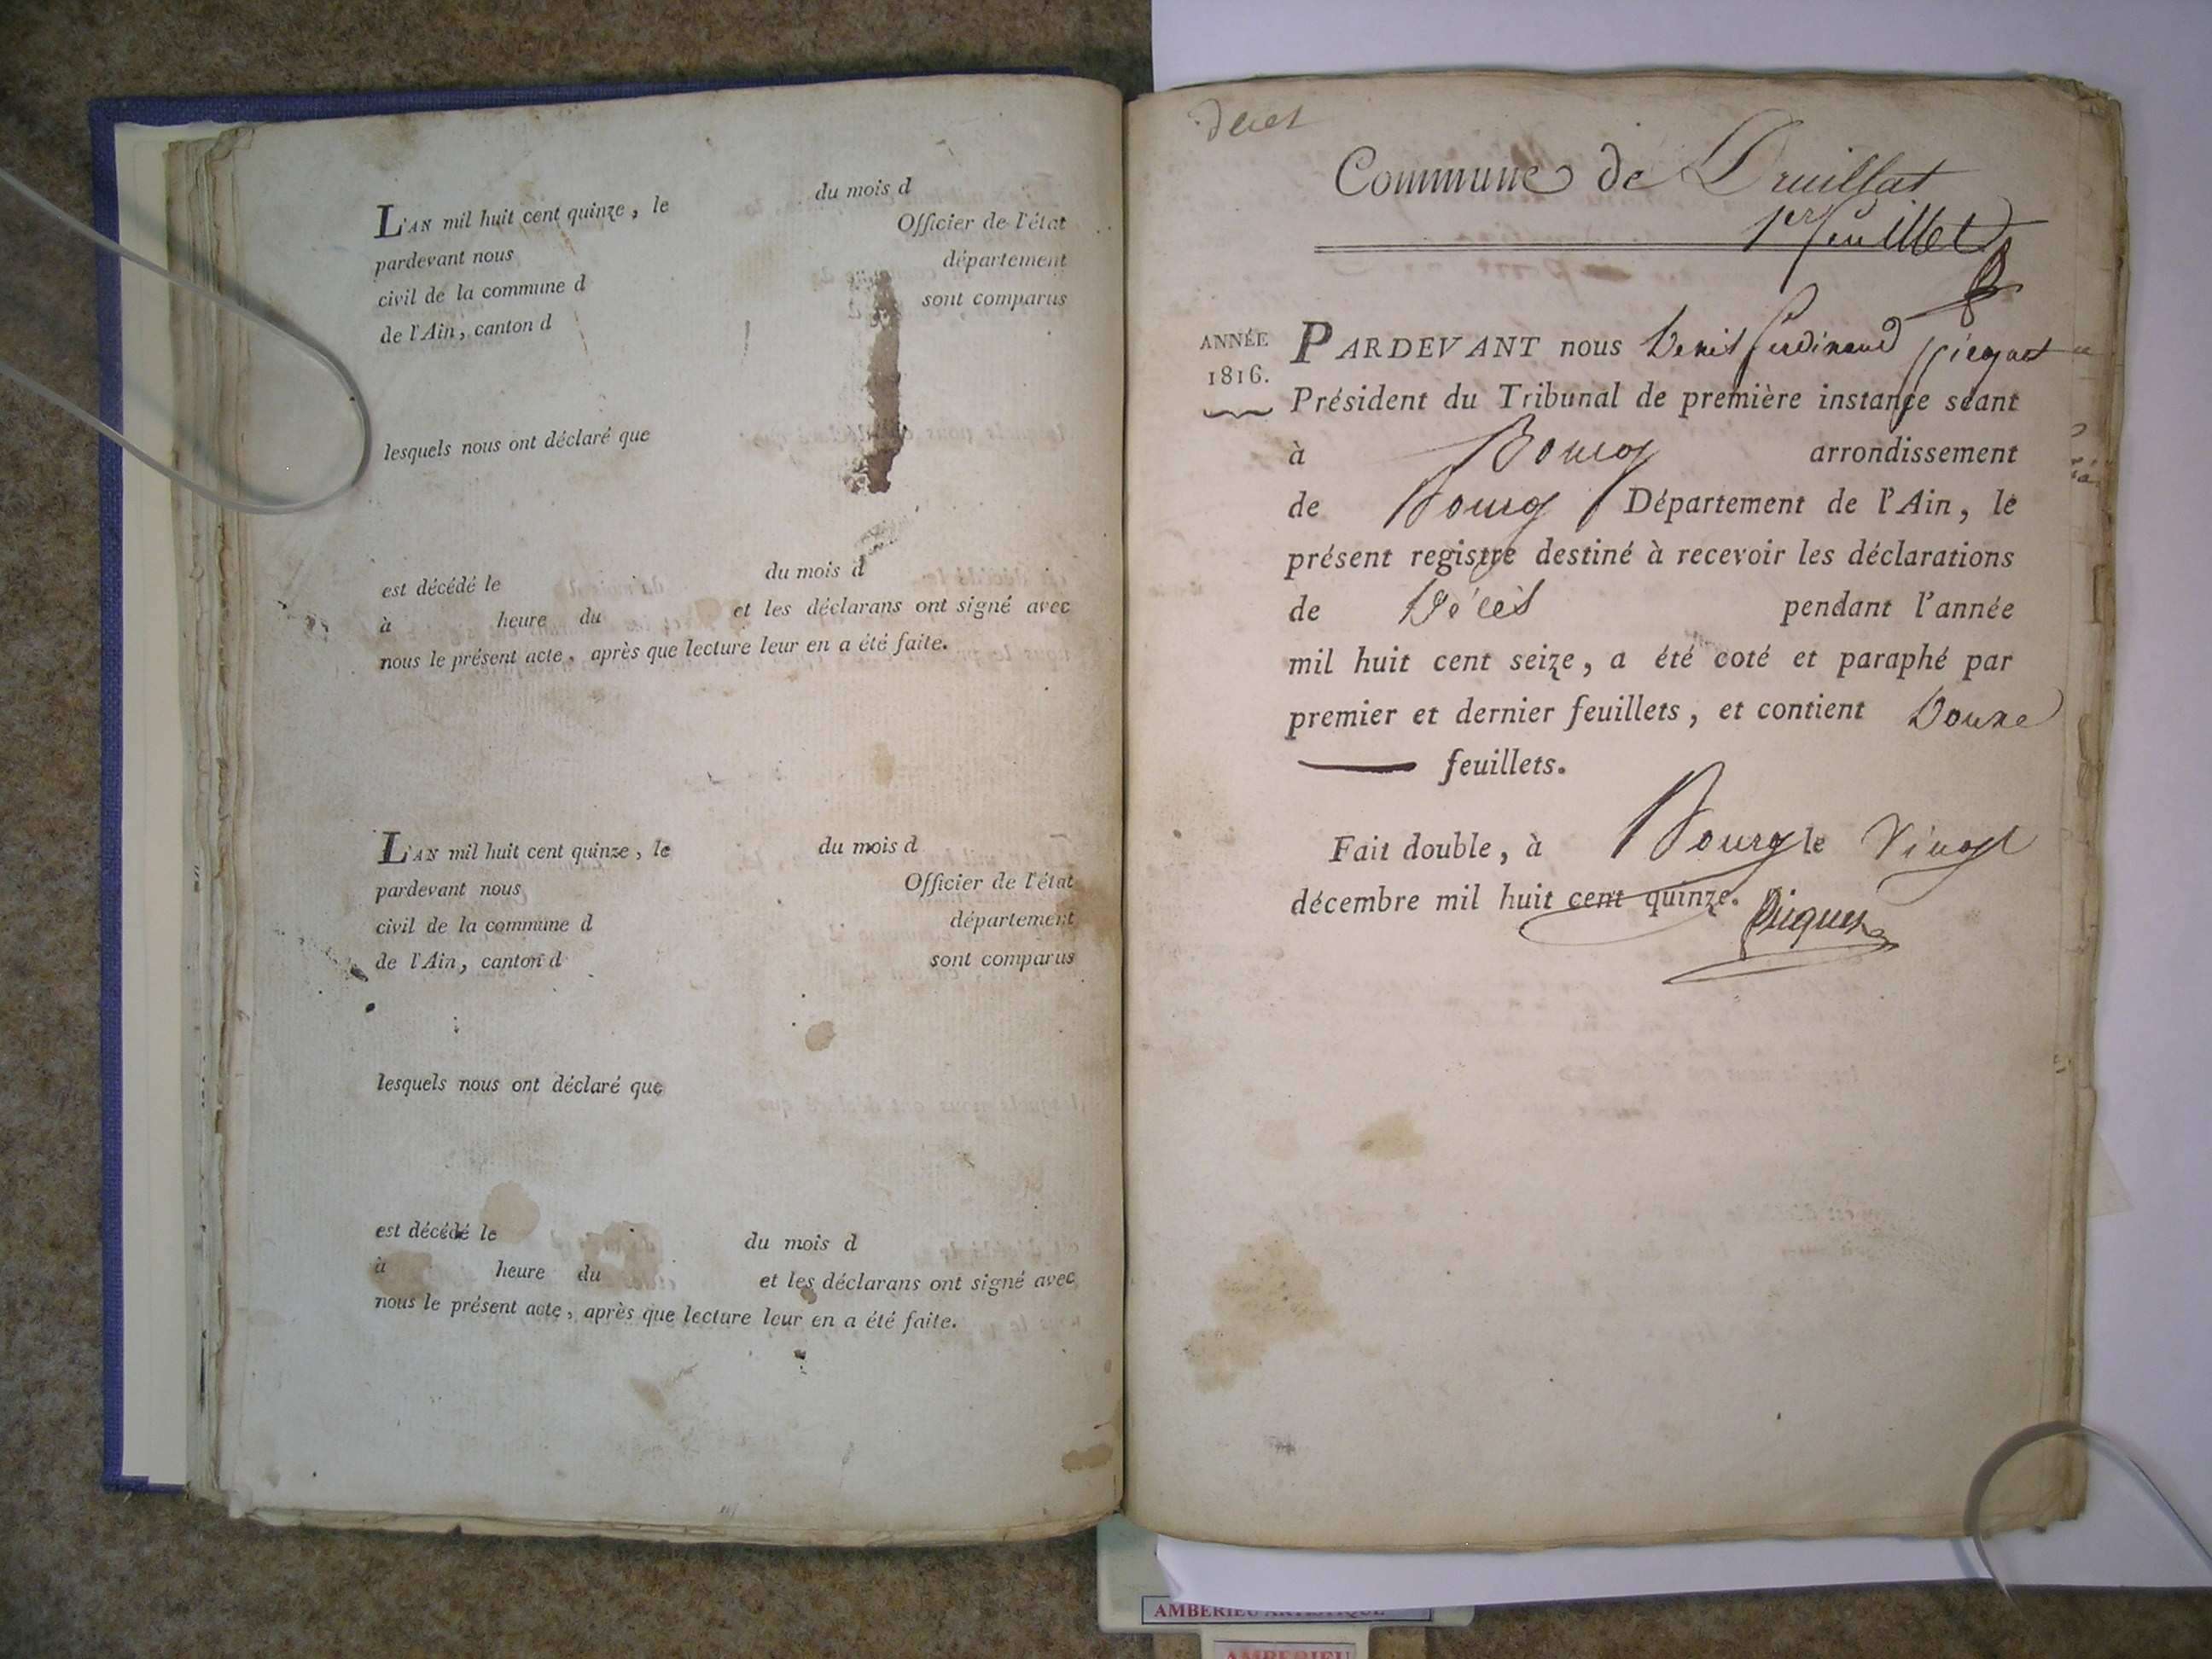 L'AN mil huit cent quinze, le du mois d
pardevant nous Officier de l'état
civil de la commune d département
de l'Ain, canton d sont comparus
lesquels nous ont déclaré que
est décédé le du mois d
à heure du et les déclarans ont signé avec
nous le présent acte, après que lecture leur en a été faite.
L'AN mil huit cent quinze, le du mois d
pardevant nous Officier de l'état
civil de la commune d département
de l'Ain, canton d sont comparus
lesquels nous ont déclaré que
est décédé le du mois d
à heure du et les déclarans ont signé avec
nous le présent acte, après que lecture leur en a été faite.
Commune de Druillat
1er feuillet
ANNÉE
1816.
PARDEVANT nous Denis Ferdinand Picquet
Président du Tribunal de première instance séant
à Bourg arrondissement
de Bourg Département de l'Ain, le
présent registre destiné à recevoir les déclarations
de Décès pendant l'année
mil huit cent seize, a été coté et paraphé par
premier et dernier feuillets, et contient Douze
feuillets.
Fait double, à Bourg le Vingt
décembre mil huit cent quinze.
Picquet
AMBERIEU ARTISTIQUE
AMBERIEU